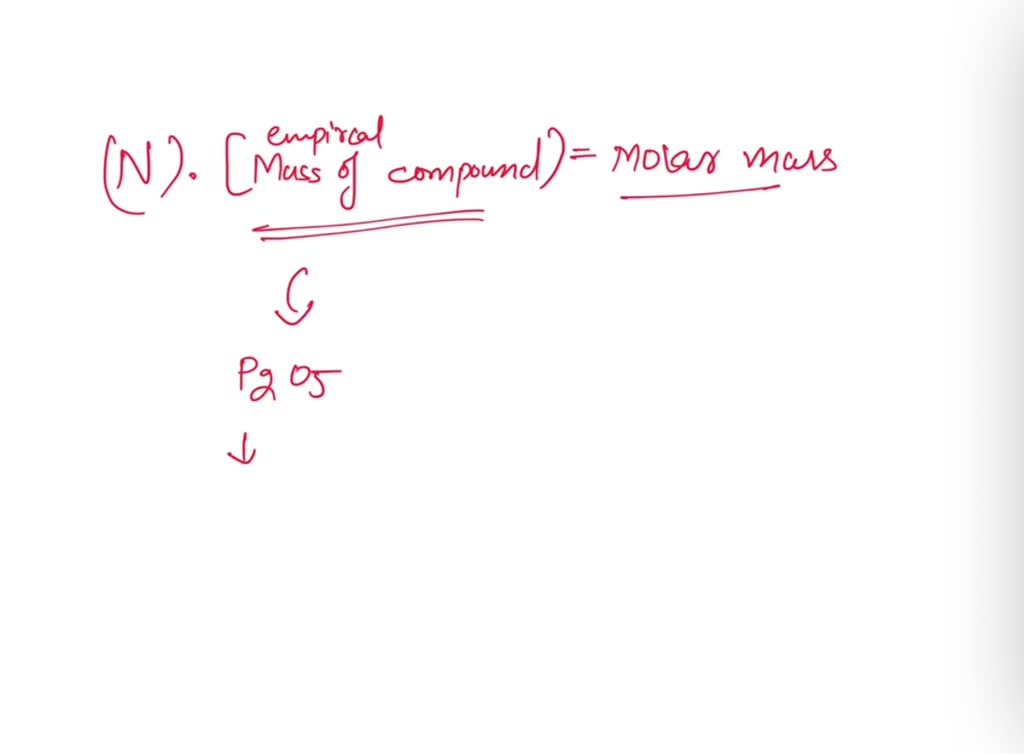 (N). [empircal Mass of compound) = Molar mass
P2O5